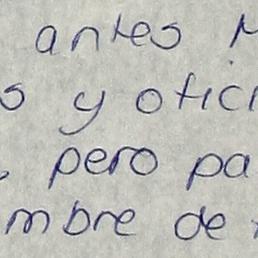 antes
s y ofici
, pero pa
mbre de